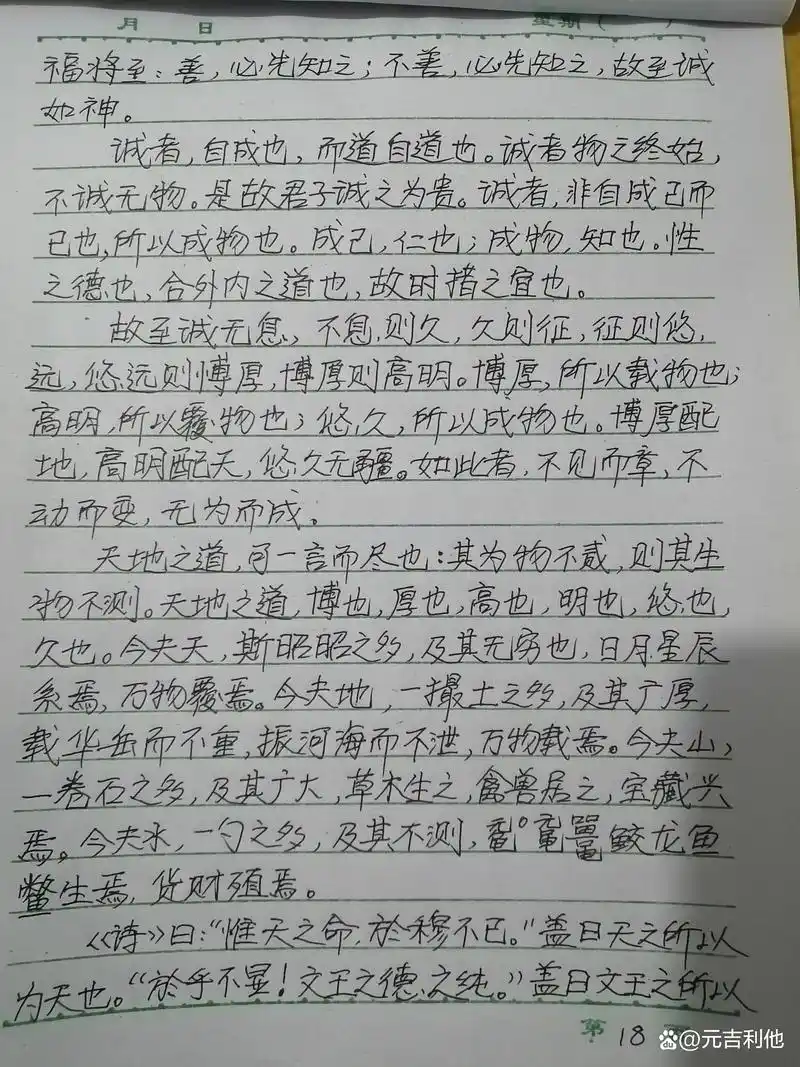 月 日 星期( )
福将至：善，必先知之；不善，必先知之，故至诚
如神。
诚者，自成也，而道自道也。诚者物之终始，
不诚无物。是故君子诚之为贵。诚者，非自成已而
已也，所以成物也。成己，仁也；成物，知也。性
之德也，合外内之道也，故时措之宜也。
故至诚无息，不息则久，久则征，征则悠
远，悠远则博厚，博厚则高明。博厚，所以载物也；
高明，所以覆物也；悠久，所以成物也。博厚配
地，高明配天，悠久无疆。如此者，不见而章，不
动而变，无为而成。
天地之道，可一言而尽也：其为物不贰，则其生
物不测。天地之道，博也，厚也，高也，明也，悠也，
久也。今夫天，斯昭昭之多，及其无穷也，日月星辰
系焉，万物覆焉。今夫地，一撮土之多，及其广厚，
载华岳而不重，振河海而不泄，万物载焉。今夫山，
一卷石之多，及其广大，草木生之，禽兽居之，宝藏兴
焉。今夫水，一勺之多，及其不测，鲛龙鱼
鳖生焉，货财殖焉。
《诗》曰："惟天之命，於穆不已。"盖曰天之所以
为天也。"於乎不显！文王之德之纯。"盖曰文王之所以
第 18
@元吉利他